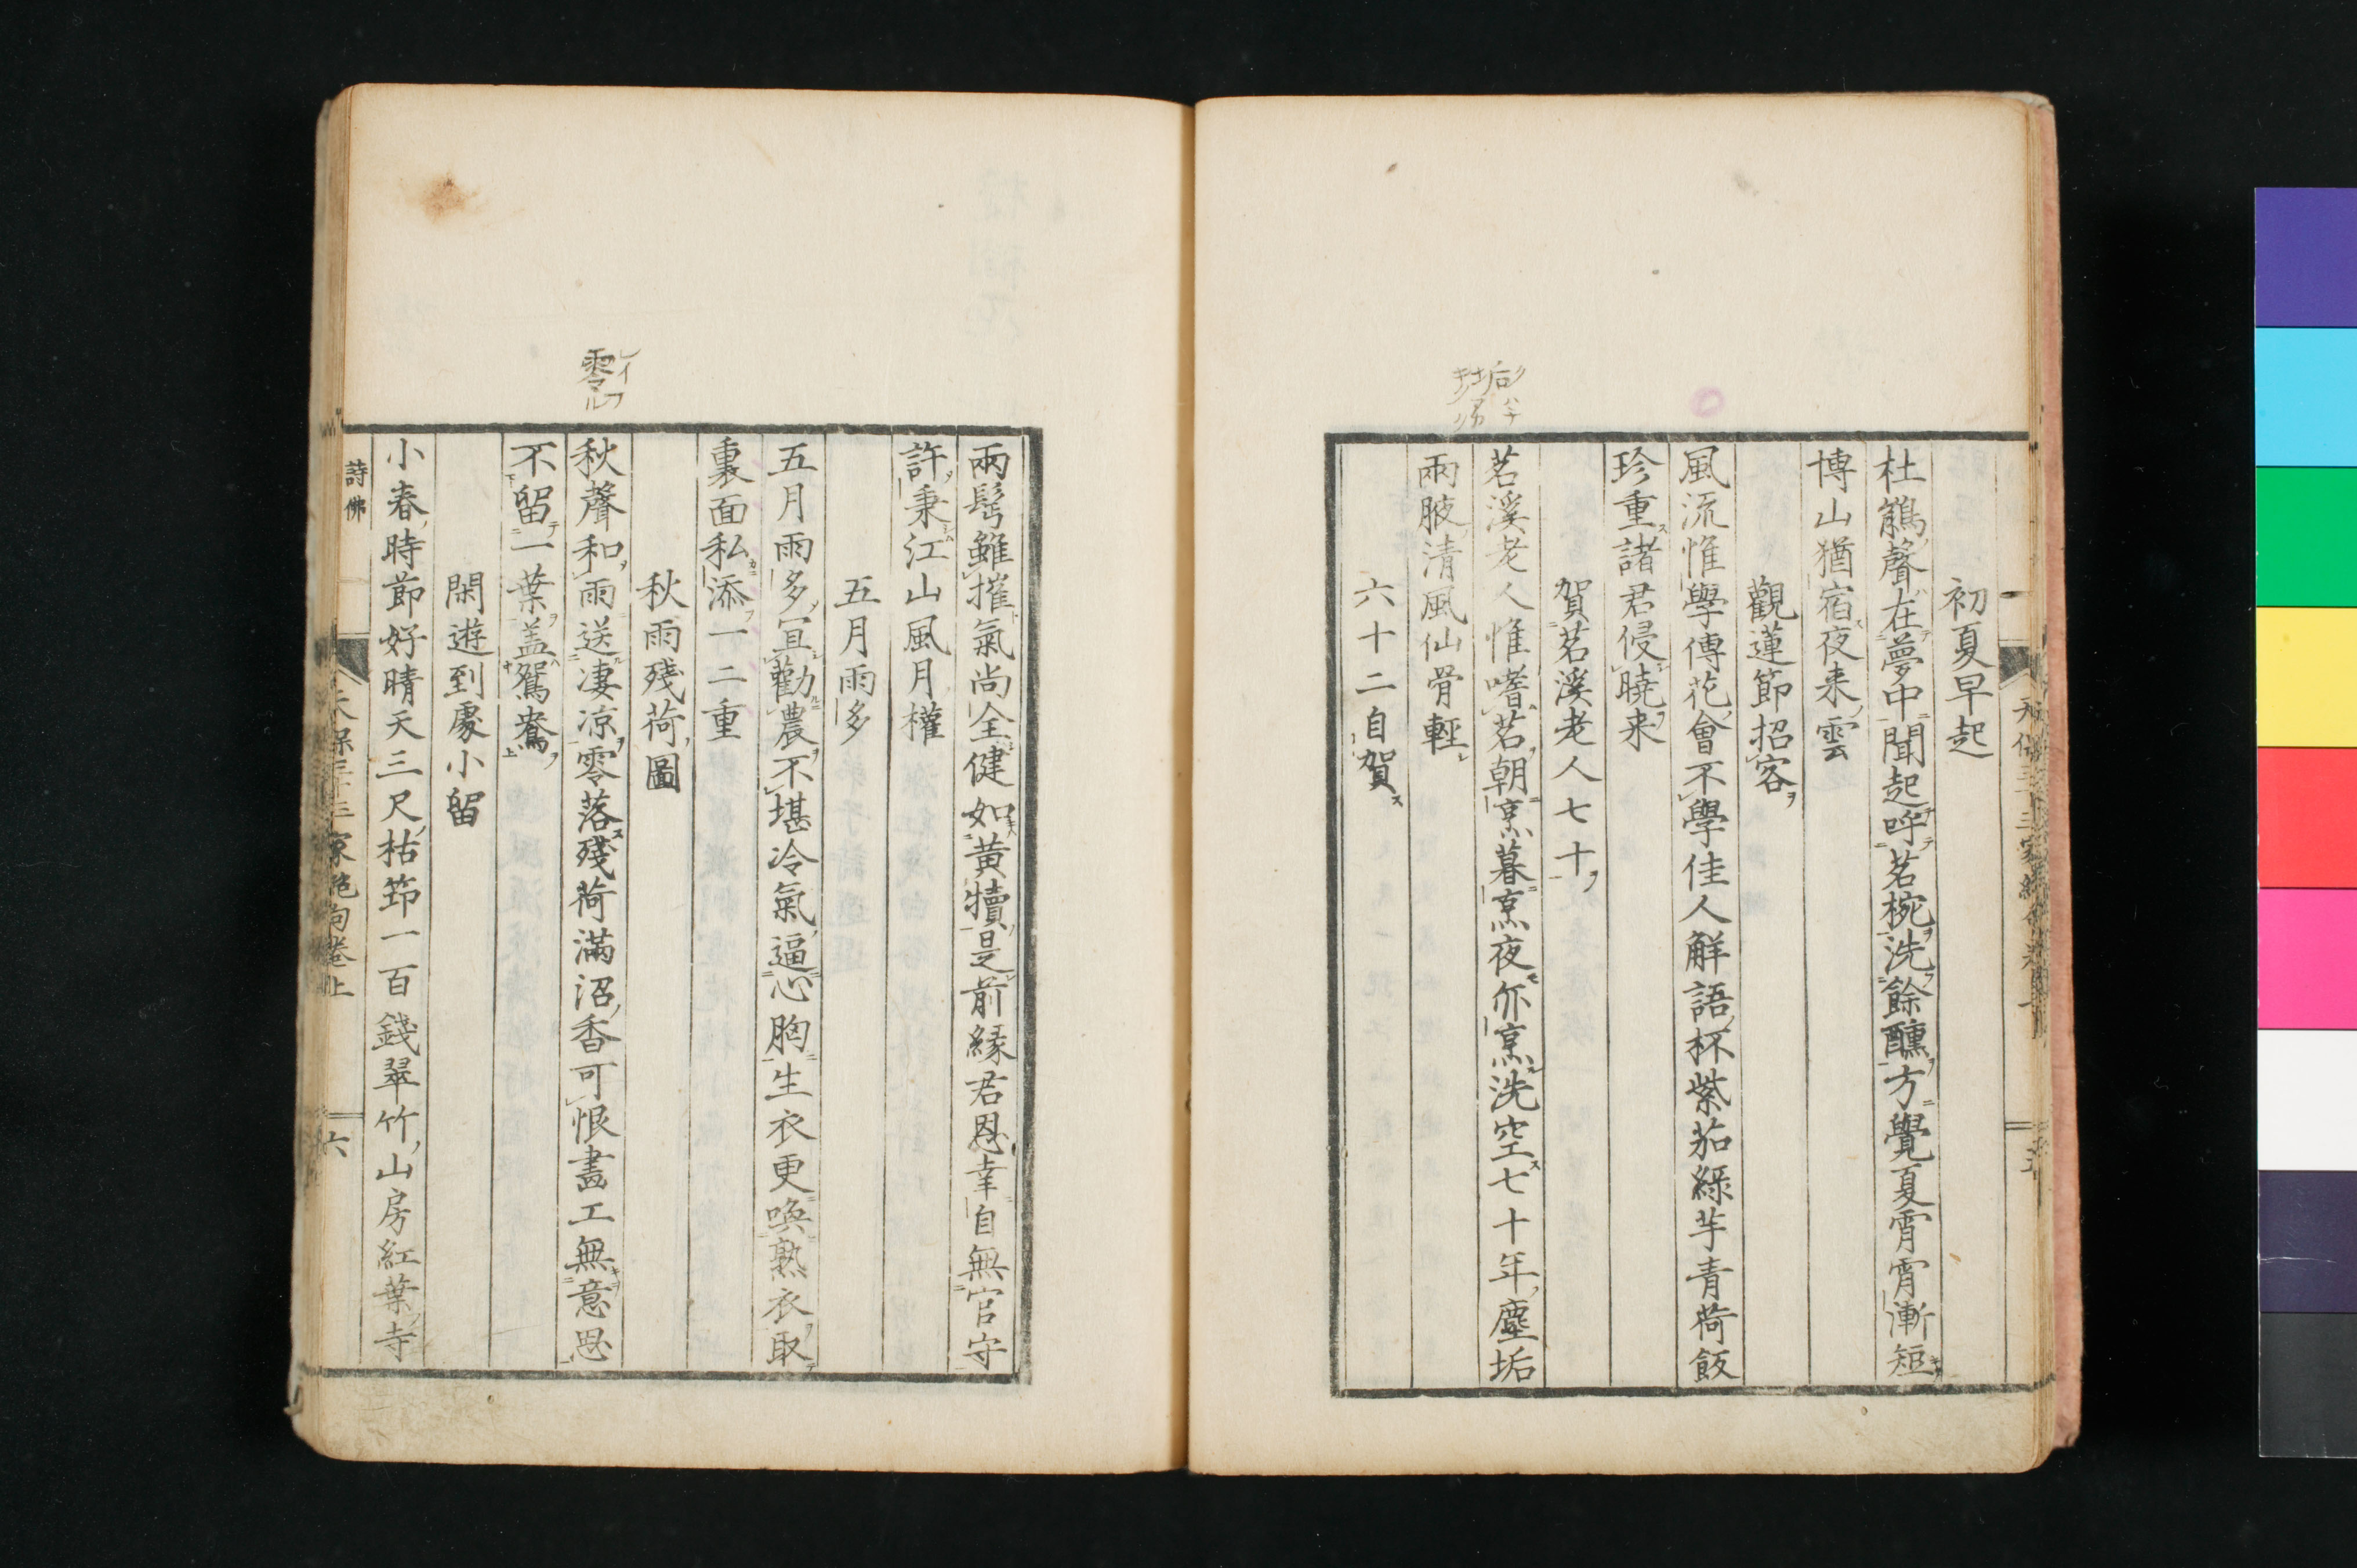 初夏早起
杜鵑聲在夢中聞起呼茗椀洗餘醺方覺夏宵宵漸短
博山猶宿夜来雲
觀蓮節招客
風流惟學傳花會不學佳人解語杯紫茄綠芋青荷飯
珍重諸君侵曉来
賀茗溪老人七十
茗溪老人惟嗜茗朝烹暮烹夜亦烹洗空七十年塵垢
兩腋清風仙骨輕
六十二自賀
兩髩雖摧氣尚全健如黃犢是前緣君恩幸自無官守
許秉江山風月權
五月雨多
五月雨多宜勸農不堪冷氣逼心胸生衣更喚熟衣取
裏面私添一二重
秋雨殘荷圖
秋聲和雨送凄凉零落殘荷滿沼香可恨畫工無意思
不留一葉盖鴛鴦
閑遊到處小留
小春時節好晴天三尺枯笻一百錢翠竹山房紅葉寺
詩佛
天保三十三家絶句卷上
六
零
レイ